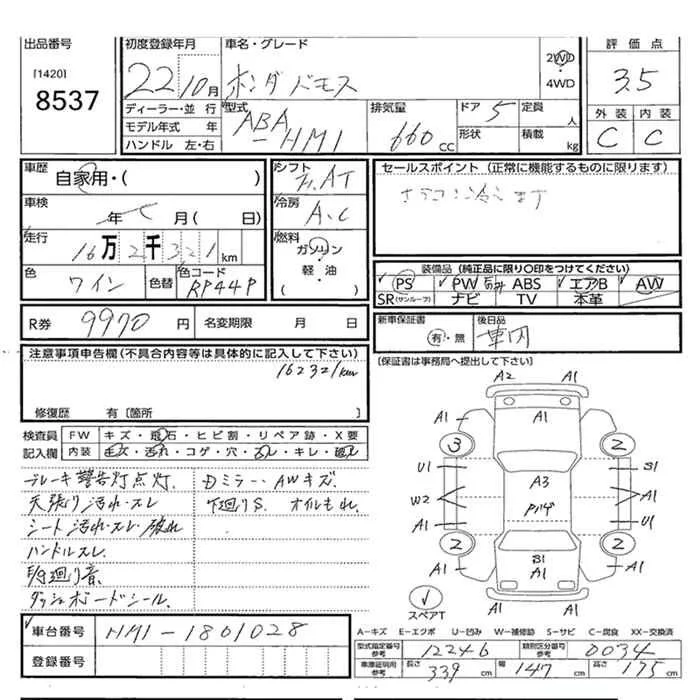 出品番号
[1420]
8537
初度登録年月
22年10月
ディーラー・並行
モデル年式 年
ハンドル 左・右
車名・グレード
ホンダ バモス
2WD
4WD
型式
ABA
-HM1
排気量
660 CC
ドア 5
形状
定員 人
積載 kg
評価点
3.5
外装 内装
C C
車歴
自家用・( )
車検
年 月( 日)
走行
16万2千321km
色
ワイン
色替
色コード
RP44P
シフト
AT
冷房
A.C
燃料
ガソリン
軽・油
セールスポイント (正常に機能するものに限ります)
装備品 (純正品に限り〇印をつけてください)
PS PW ABS エアB AW
SR(サンルーフ) ナビ TV 本革
R券 9970 円 名変期限 月 日
新車保証書
有・無
後日品
[保証書は事務局へ提出して下さい]
注意事項申告欄(不具合内容等は具体的に記入して下さい)
162321km
修復歴 有〔箇所 〕
検査員
記入欄
FW キズ・飛石・ヒビ割・リペア跡・X要
内装 キズ・汚れ・コゲ・穴・スレ・キレ
ブレーキ警告灯点灯. ミラー・AWキズ.
天張り汚れ・スレ 下廻りS. オイルもれ.
シート汚れ・スレ・破れ
ハンドルスレ.
廻り音.
ダッシュボードシール.
A2 A1
A1 A1 A1
3 2
U1 S1
A3
W2 A1
A1 U1
2 2
B1
A1 A1 A1
スペアT
車台番号 HM1-1801028
登録番号
A-キズ E-エクボ U-凹み W-補修跡 S-サビ C-腐食 XX-交換済
型式指定番号 参考 12246 類別区分番号 参考 0034
車庫証明用 参考 長さ 339 cm 幅 147 cm 高さ 175 cm